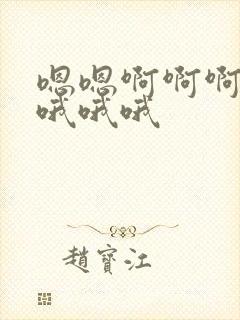 嗯嗯啊啊啊
哦哦哦
趙寳江